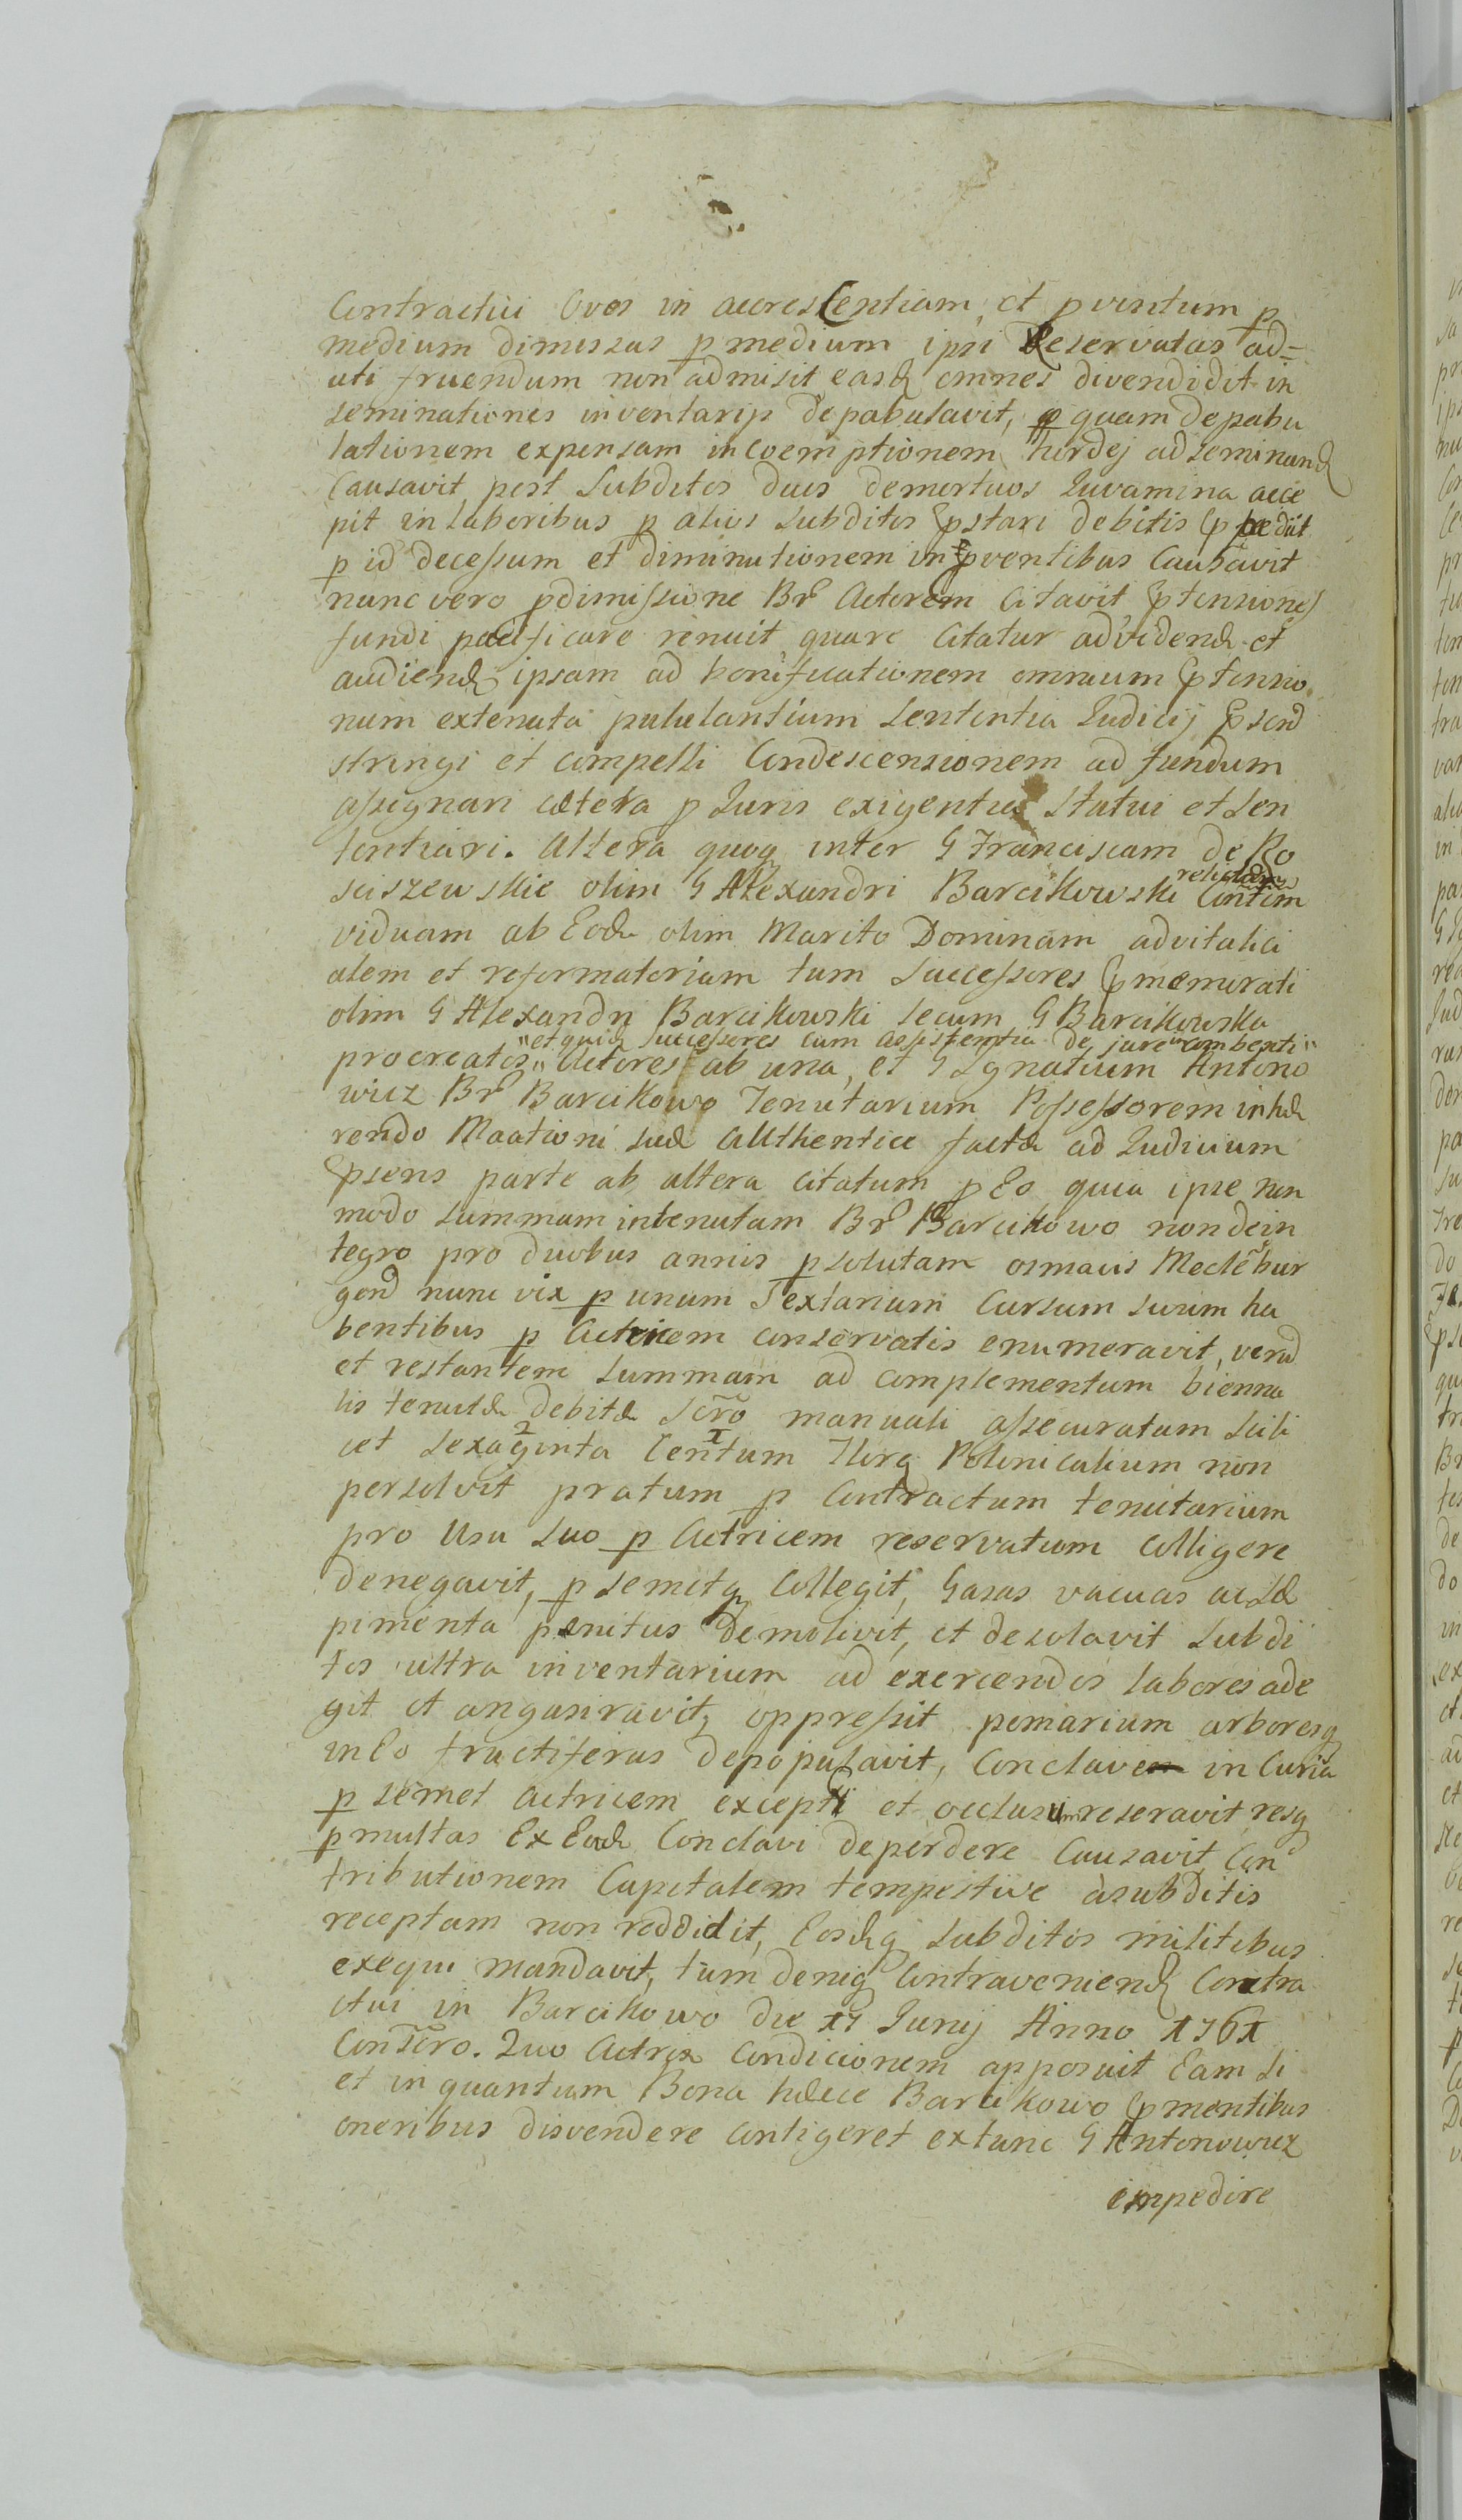 Contractui Oves in accrescentiam et pventum p
medium dimissas p medium ipsi reservatas ad=
uti fruendum non admisit easq omnes divendidit in
seminationes inventarij depabulavit, p quam depabu
lationem expensam in coemptionem hordej ad seminand
Causavit post Subditos duos demortuos Iuvamina acce
pit in laboribus p alios Subditos pstari debitis
p id decessum et diminutionem in pventibus Causavit
nunc vero pdimissione Br Actorem Citavit ptensiones
fundi pacificare renuit quare Citatur ad vidend et
audiend ipsam ad bonificationem omnium ptensio
num extenuta pululantium Sententia Iudicij psend
stringi et compelli Condescensionem ad fundum
assignari cetera p Iuris exigentia Statui et Sen
tentiari. Altera quoq inter G Franciscam de Ko
sciszewskie olim G Alexandri Barcikowski relictam Contem
viduam ab Eod olim Marito Dominam advitalici
alem et reformatoriam tum Successores pmemorati
olim G Alexandri Barcikowski secum G Barcikowska
"et quid Successores cum assistentia de jure combenti"
procreatos " Actores ab una, et G Ignatium Antono
wicz Br Barcikowo Tenutarium Possessorem inhæ
rendo Moationi suæ Authentice factæ ad Iudicium
psens parte ab altera citatum p Eo quia ipse non
modo Summam in tenutam Br Barcikowo non de in
tegro pro duobus annis psolutam osmacis Meclebur
gend nunc vix p unum Sextarium Cursum suum ha
bentibus p Actricem conservatis enumeravit, verud
et restantem Summam ad complementum bienna
lis tenutæ debitæ Scro manuali assecuratum Scili
cet Sexaginta 2 Centum 1 Florg Polonicalium non
persolvit pratum p Contractum tenutarium
pro Usu Suo p Actricem reservatum Colligere
denegavit, p semetq Collegit, Gasas vacuas ac Sæ
pimenta pænitus demolivit, et desolavit Subdi
tos ultra inventarium ad exercendos labores ade
git et angasiravit, oppressit pomarium arboresq
in Eo fructiferas depopulavit, Conclave in Curia
p semet Actricem et occlusum reseravit resq
p multas Ex Eod Conclavi deperdere Causavit Con
tributionem Capitalem tempestive a subditis
receptam non reddidit, Eosdq Subditos militibus
exequi mandavit, tum deniq Contraveniend Contra
ctui in Barcikowo die 17 Junij Anno 1761
Conscro. Quo Actrix Condicionem apposuit Eam Si
et in quantum Bona hæcce Barcikowo pmentibus
oneribus disvendere Contigeret extunc G Antonowicz
impedire